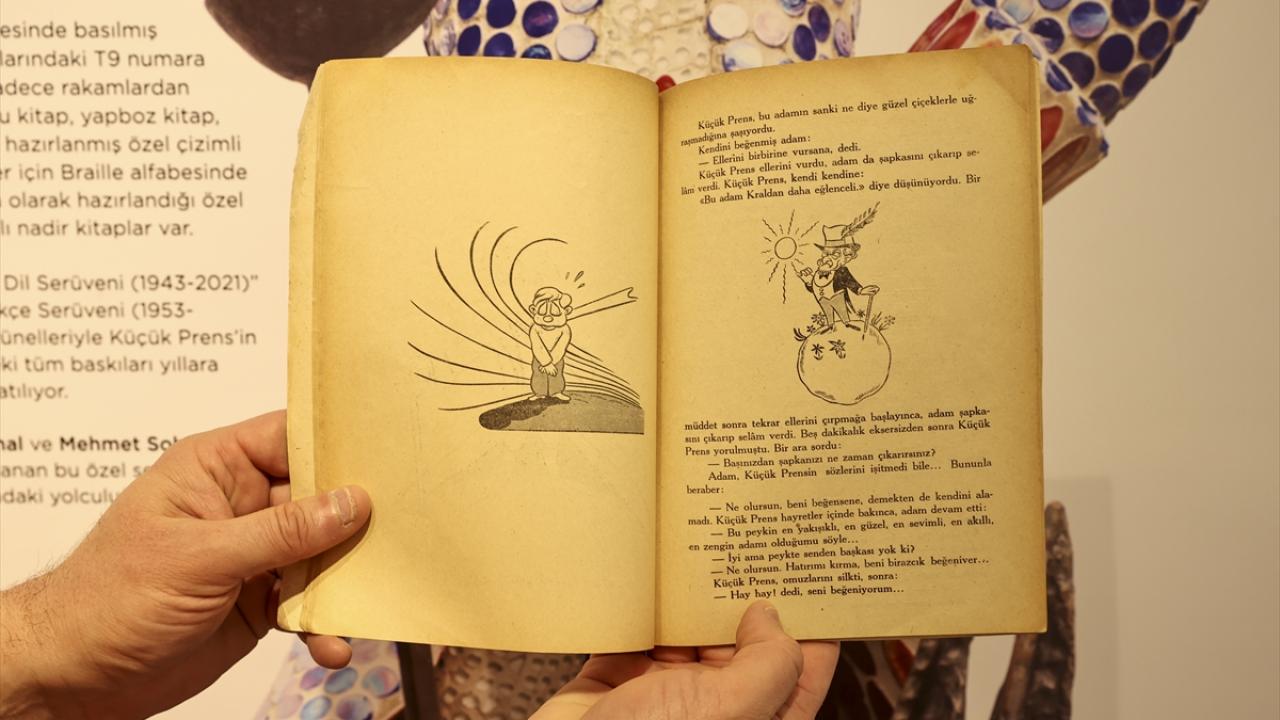 esinde basılmış
larındaki T9 numara
adece rakamlardan
u kitap, yapboz kitap,
hazırlanmış özel çizimli
er için Braille alfabesinde
olarak hazırlandığı özel
lı nadir kitaplar var.
Dil Serüveni (1943-2021)"
kçe Serüveni (1953-
ünelleriyle Küçük Prens'in
ki tüm baskıları yıllara
atılıyor.
nal ve Mehmet Sob
anan bu özel se
daki yolculu
Küçük Prens, bu adamın sanki ne diye güzel çiçeklerle uğ-
raşmadığına şaşıyordu.
Kendini beğenmiş adam:
— Ellerini birbirine vursana, dedi.
Küçük Prens ellerini vurdu, adam da şapkasını çıkarıp se-
lâm verdi. Küçük Prens, kendi kendine:
«Bu adam Kraldan daha eğlenceli.» diye düşünüyordu. Bir
müddet sonra tekrar ellerini çırpmağa başlayınca, adam şapka-
sını çıkarıp selâm verdi. Beş dakikalık eksersizden sonra Küçük
Prens yorulmuştu. Bir ara sordu:
— Başınızdan şapkanızı ne zaman çıkarırsınız?
Adam, Küçük Prensin sözlerini işitmedi bile... Bununla
beraber:
— Ne olursun, beni beğensene, demekten de kendini ala-
madı. Küçük Prens hayretler içinde bakınca, adam devam etti:
— Bu peykin en yakışıklı, en güzel, en sevimli, en akıllı,
en zengin adamı olduğumu söyle...
— İyi ama peykte senden başkası yok ki?
— Ne olursun. Hatırımı kırma, beni birazcık beğeniver...
Küçük Prens, omuzlarını silkti, sonra:
— Hay hay! dedi, seni beğeniyorum...